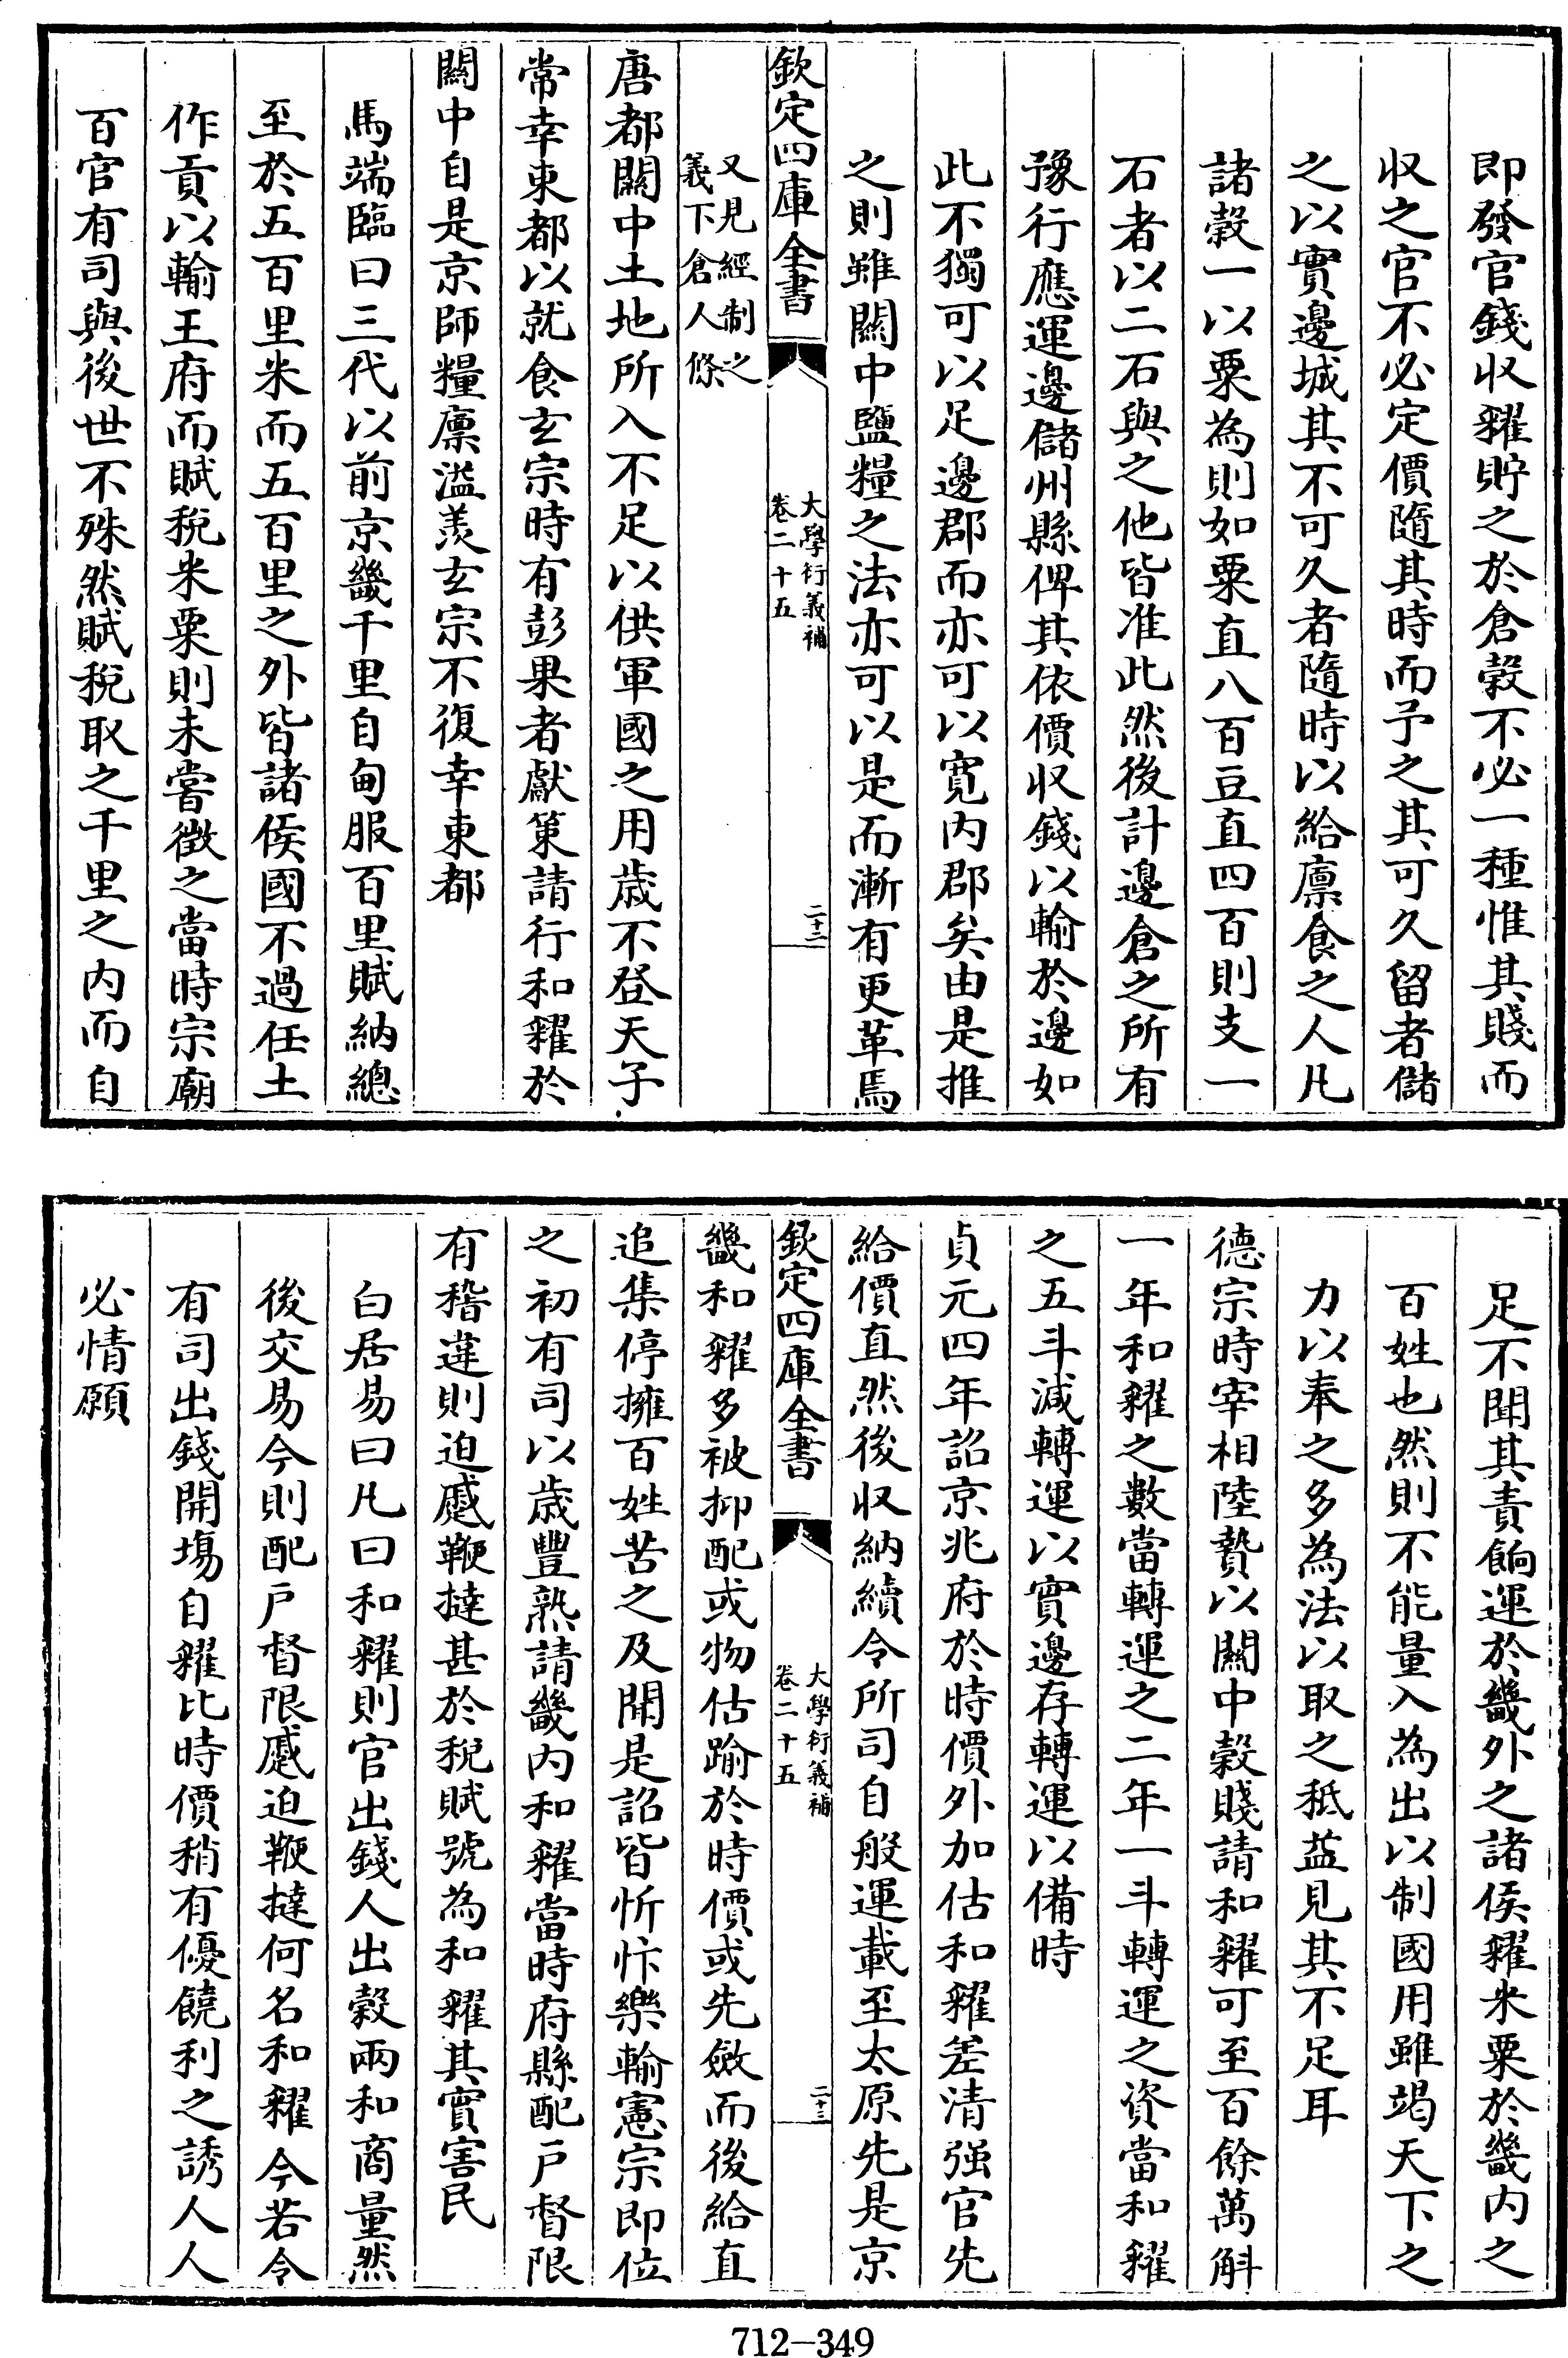 即發官錢收糴貯之於倉穀不必一種惟其賤而
收之官不必定價隨其時而予之其可久留者儲
之以實邊城其不可久者隨時以給廪食之人凡
諸穀一以粟為則如粟直八百豆直四百則支一
石者以二石與之他皆准此然後計邊倉之所有
豫行應運邊儲州縣俾其依價收錢以輸於邊如
此不獨可以足邊郡而亦可以寛内郡矣由是推
之則雖關中鹽糧之法亦可以是而漸有更革焉
欽定四庫全書
大學衍義補
卷二十五
二十二
又見經制之
義下倉人條
唐都關中土地所入不足以供軍國之用歲不登天子
常幸東都以就食玄宗時有彭果者獻策請行和糴於
關中自是京師糧廪溢羨玄宗不復幸東都
馬端臨曰三代以前京畿千里自甸服百里賦納總
至於五百里米而五百里之外皆諸侯國不過任土
作貢以輸王府而賦稅米粟則未嘗徴之當時宗廟
百官有司與後世不殊然賦稅取之千里之内而自
足不聞其責餉運於畿外之諸侯糴米粟於畿内之
百姓也然則不能量入為出以制國用雖竭天下之
力以奉之多為法以取之秪益見其不足耳
德宗時宰相陸贄以關中穀賤請和糴可至百餘萬斛
一年和糴之數當轉運之二年一斗轉運之資當和糴
之五斗減轉運以實邊存轉運以備時
貞元四年詔京兆府於時價外加估和糴差清强官先
給價直然後收納續令所司自般運載至太原先是京
欽定四庫全書
大學衍義補
卷二十五
二十三
畿和糴多被抑配或物估踰於時價或先斂而後給直
追集停擁百姓苦之及聞是詔皆忻忭樂輸憲宗即位
之初有司以歲豐熟請畿内和糴當時府縣配戸督限
有稽違則迫蹙鞭撻甚於稅賦號為和糴其實害民
白居易曰凡曰和糴則官出錢人出穀兩和商量然
後交易今則配戸督限蹙迫鞭撻何名和糴今若令
有司出錢開塲自糴比時價稍有優饒利之誘人人
必情願
712-349